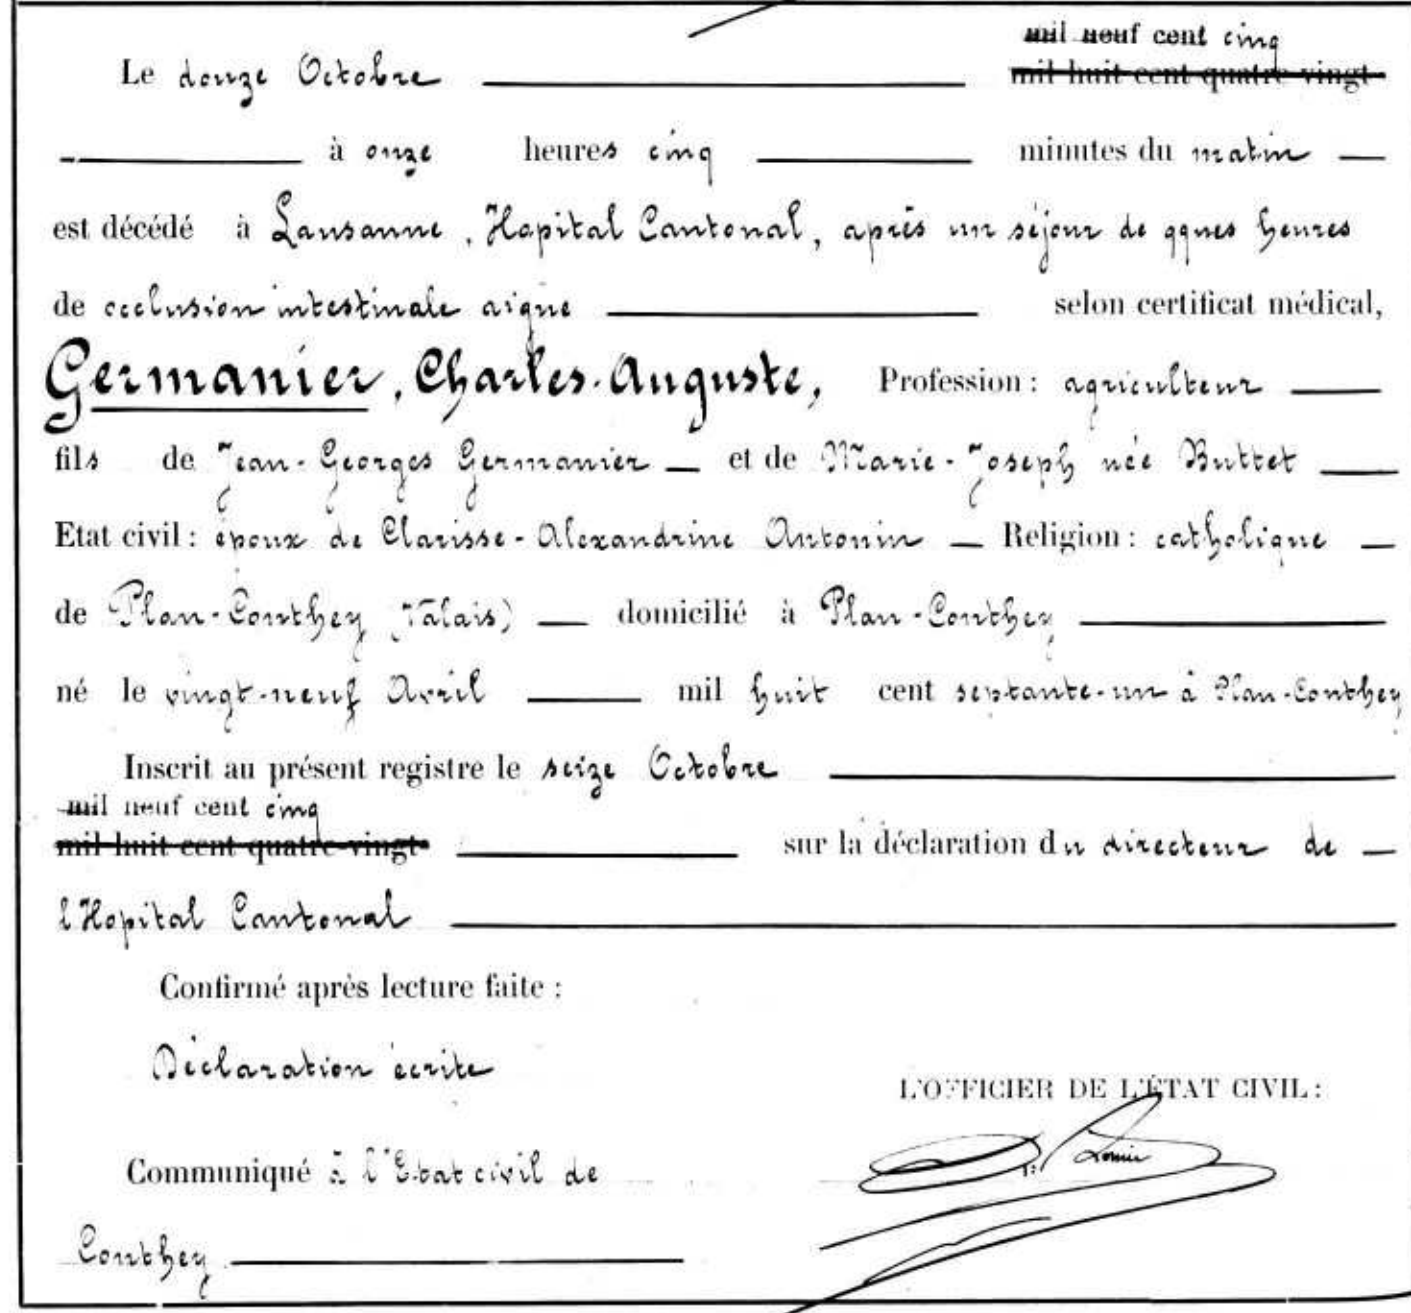 mil neuf cent cinq
Le douze Octobre mil huit cent quatre-vingt
à onze heures cinq minutes du matin
est décédé à Lausanne, Hopital Cantonal, après un séjour de qques heures
de occlusion intestinale aigue selon certificat médical,
Germanier, Charles-Auguste, Profession : agriculteur
fils de Jean-Georges Germanier et de Marie-Joseph née Buttet
Etat civil : époux de Clarisse-Alexandrine Antonin Religion : catholique
de Plan-Conthey (Valais) domicilié à Plan-Conthey
né le vingt-neuf Avril mil huit cent septante-un à Plan-Conthey
Inscrit au présent registre le seize Octobre
mil neuf cent cinq
mil huit cent quatre-vingt sur la déclaration du directeur de
l'Hopital Cantonal
Confirmé après lecture faite :
Déclaration écrite
L'OFFICIER DE L'ÉTAT CIVIL :
Communiqué à l'Etat civil de
Conthey